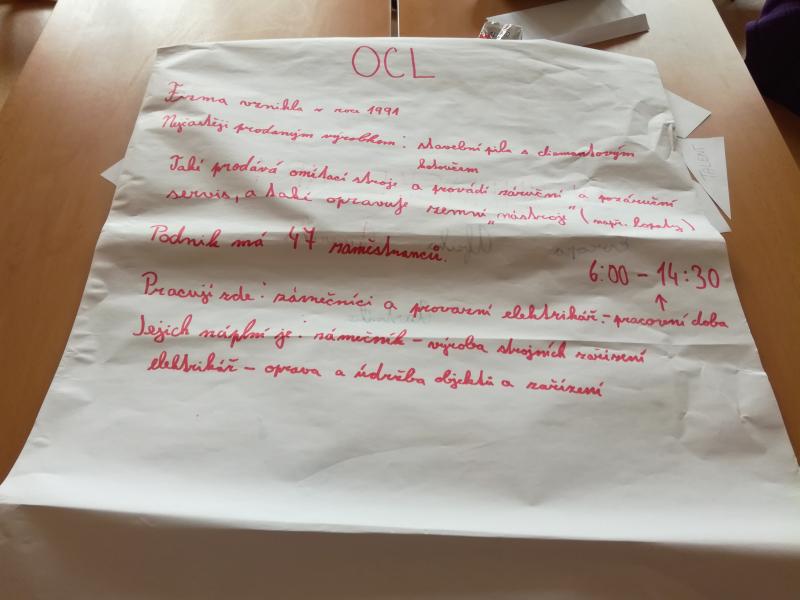 OCL
Firma vznikla v roce 1991
Nejčastěji prodaným výrobkem: stavební pila s diamantovým
kotoučem
Také prodává omítací stroje a provádí záruční a pozáruční
servis, a také opravuje zemní „nástroje" (např. lopaty)
Podnik má 47 zaměstnanců.
6:00 - 14:30
Pracují zde: zámečníci a provozní elektrikář. - pracovní doba
Jejich náplní je: zámečník - výroba strojních zařízení
elektrikář - oprava a údržba objektů a zařízení
TALENT